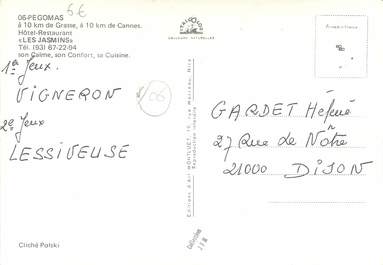 6€
06-PEGOMAS
à 10 km de Grasse, à 10 km de Cannes.
Hôtel-Restaurant
«LES JASMINS»
Tél. (93) 67-22-94
son Calme, son Confort, sa Cuisine.
1er Jeux.
VIGNERON
2e Jeux
LESSIVEUSE
06
COULEURS NATURELLES
Editions d'Art
Reproduction interdite
GARDET Héléné
27 Rue de Nôtre
21000 DIJON
Cliché Potski